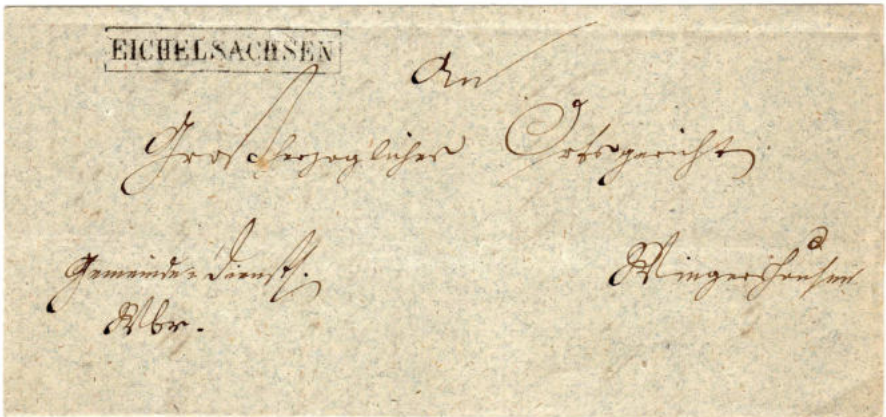 EICHELSACHSEN
An
Großherzogliches Ortsgericht
Gemeinde-Dienst.
Wingershausen
Wbr.